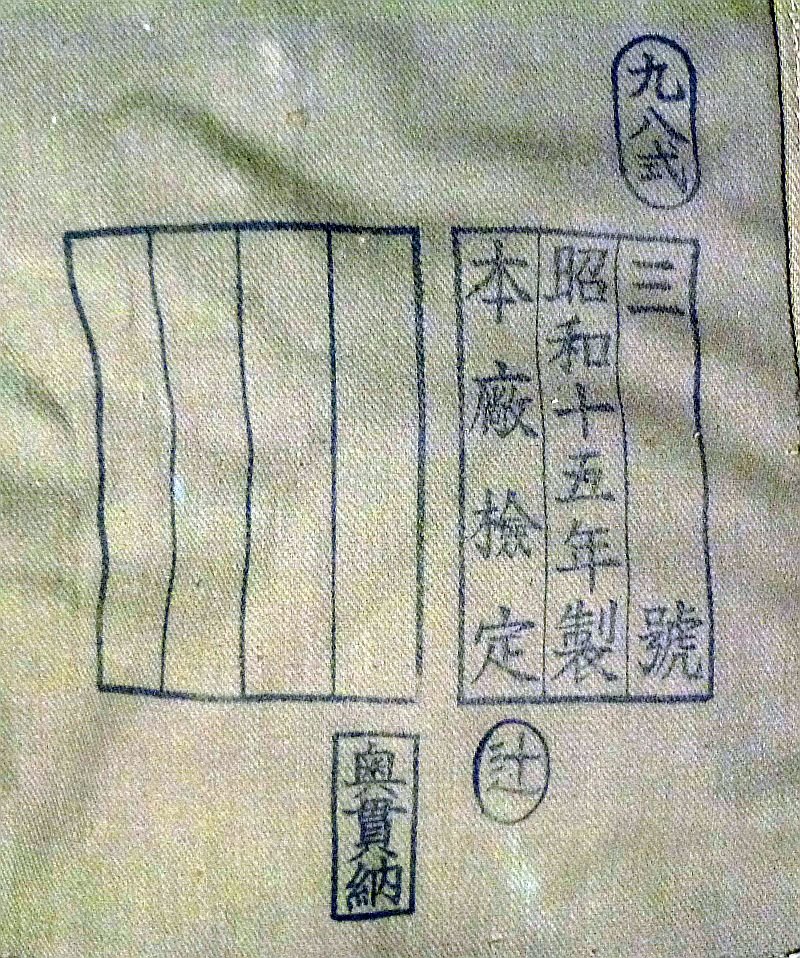 九八式
三號
昭和十五年製
本廠檢定
辻
奥貫納